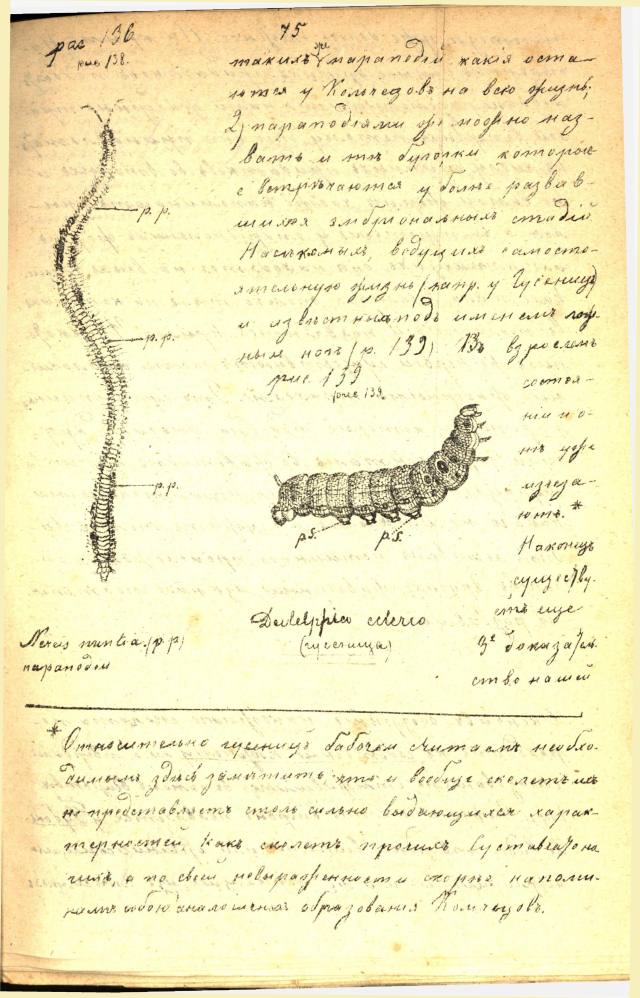 75
рис 136
рис 138.
такихъ же параподій какія оста-
ются у Кольчецовъ на всю жизнь;
2) параподіями же можно наз-
вать и тѣ бугорки которые
встрѣчаются у болѣе развив-
шихся эмбріональныхъ стадій
Насѣкомыхъ, ведущихъ самосто-
ятельную жизнь (напр. у Гусеницъ)
и извѣстныхъ подъ именемъ лож-
ныхъ ногъ (р. 139). Въ взросломъ
рис 139
рис 139.
состоя-
ніи о-
нѣ уже
изчеза-
ютъ. *
Наконецъ
существу-
етъ еще
3е доказатель-
ство нашей
p. p.
p. p.
p. p.
p.s.
p.s.
Deilephila celerio
(гусеница)
Nereis nuntia. (p. p)
параподіи
* Относительно гусеницъ бабочекъ считаемъ необхо-
димымъ здѣсь замѣтить, что и вообще скелетъ ихъ
не представляетъ столь сильно выдающихся харак-
терностей какъ скелетъ прочихъ Суставчатоно-
гихъ, а по своей невыраженности скорѣе напоми-
наетъ собою аналогичныя образованія Кольчецовъ.